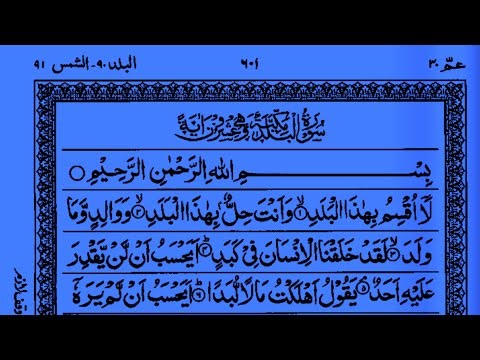 عمّ ٣٠ ٦٠١ البلد ٩٠-الشمس ٩١
سُوْرَةُ الْبَلَدِ مَكِّيَّةٌ وَّهِيَ عِشْرُوْنَ اٰيَةً
بِسْمِ اللّٰهِ الرَّحْمٰنِ الرَّحِيْمِ ○
لَآ اُقْسِمُ بِهٰذَا الْبَلَدِ ۙ﴿۱﴾ وَاَنْتَ حِلٌّۢ بِهٰذَا الْبَلَدِ ۙ﴿۲﴾ وَوَالِدٍ وَّمَا
وَلَدَ ۙ﴿۳﴾ لَقَدْ خَلَقْنَا الْاِنْسَانَ فِيْ كَبَدٍ ؕ﴿۴﴾ اَيَحْسَبُ اَنْ لَّنْ يَّقْدِرَ
عَلَيْهِ اَحَدٌ ۘ﴿۵﴾ يَقُوْلُ اَهْلَكْتُ مَالًا لُّبَدًا ؕ﴿۶﴾ اَيَحْسَبُ اَنْ لَّمْ يَرَهٗۤ